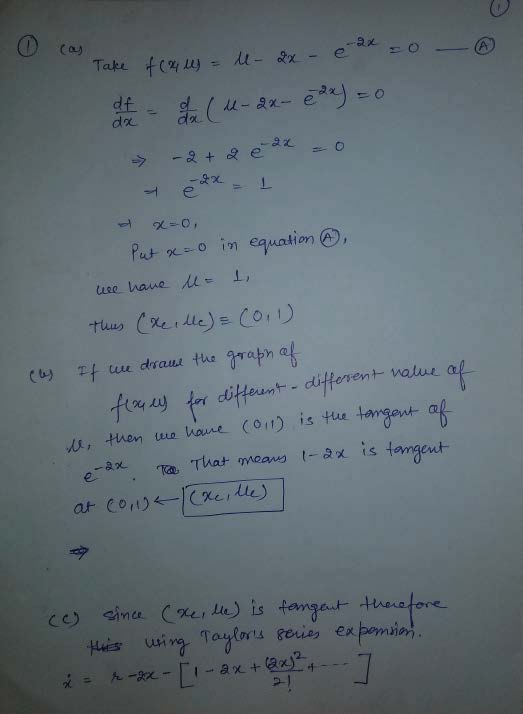 ①
① (a)
Take f(x,μ) = μ - 2x - e^{-2x} = 0 — Ⓐ
df/dx = d/dx (μ - 2x - e^{-2x}) = 0
⇒ -2 + 2 e^{-2x} = 0
⇒ e^{-2x} = 1
⇒ x=0,
Put x=0 in equation Ⓐ,
we have μ = 1,
Thus (x_c, μ_c) ≡ (0,1)
(b) If we draw the graph of
f(x,μ) for different-different value of
μ, then we have (0,1) is the tangent of
e^{-2x}. That means 1-2x is tangent
at (0,1) ← (x_c, μ_c)
⇒
(c) Since (x_c, μ_c) is tangent therefore
this using Taylor's series expansion.
ẋ = r - 2x - [1 - 2x + (2x)²/2! + ---- ]